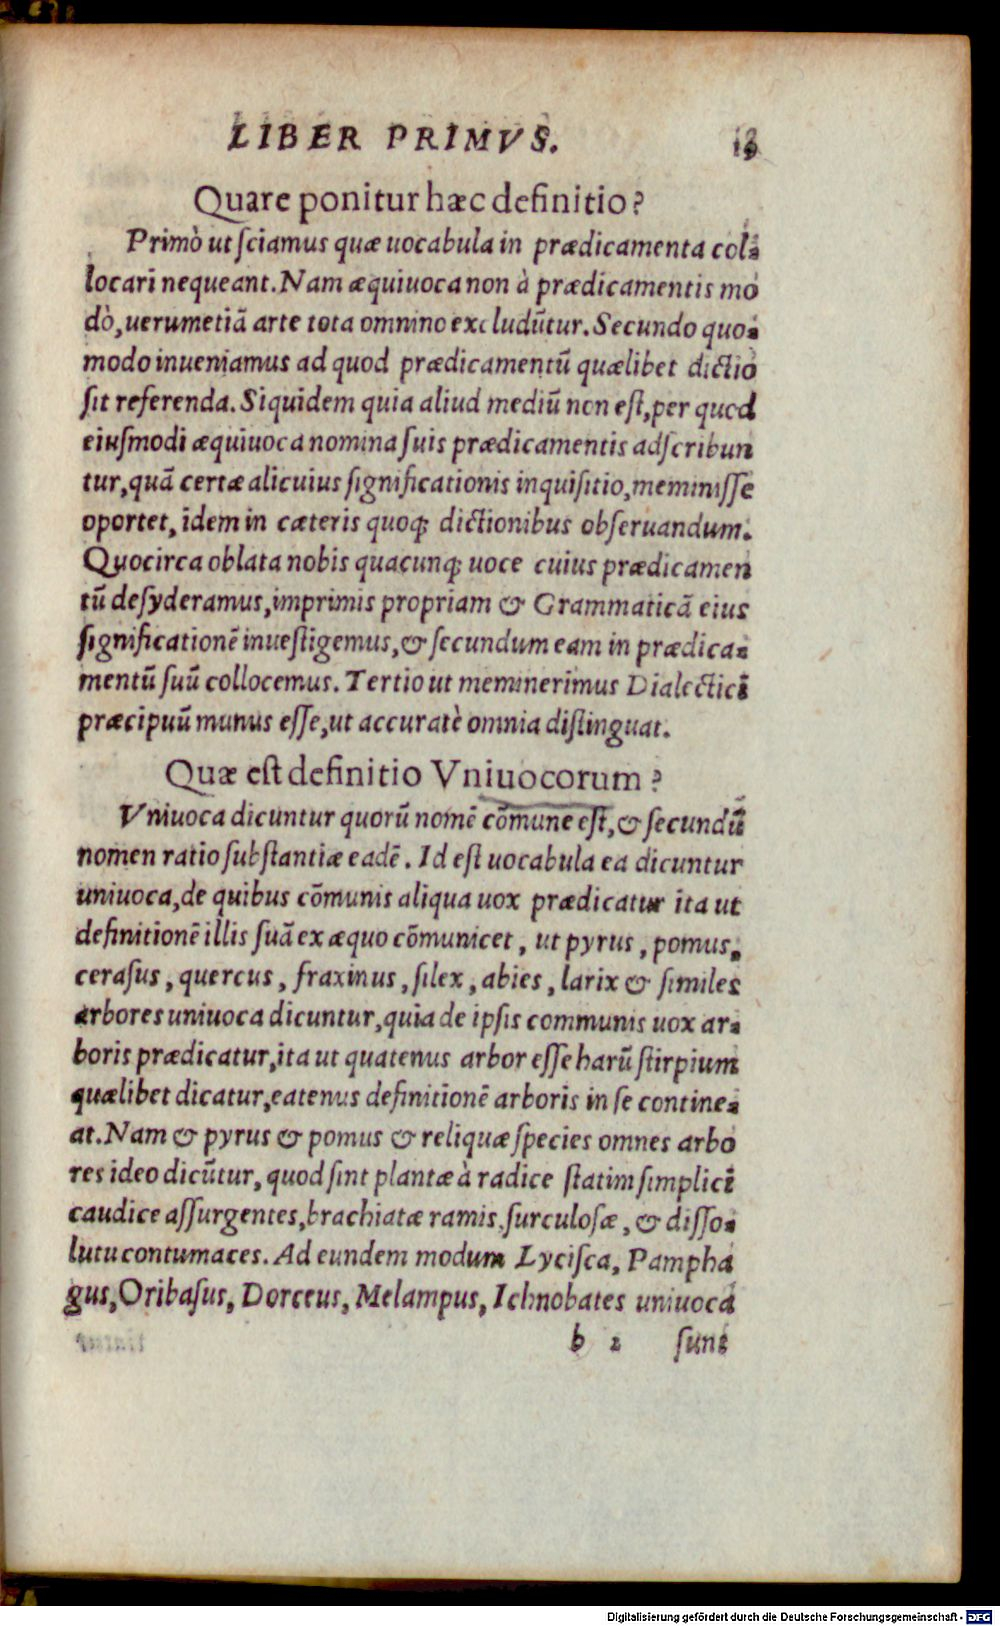 LIBER PRIMVS.
Quare ponitur hæc definitio?
Primò ut sciamus quæ uocabula in prædicamenta col-
locari nequeant. Nam æquiuoca non à prædicamentis mo
dò, uerumetiā arte tota omnino excludūtur. Secundo quo-
modo inueniamus ad quod prædicamentū quælibet dictio
sit referenda. Siquidem quia aliud mediū non est, per quod
eiusmodi æquiuoca nomina suis prædicamentis adscribun
tur, quā certæ alicuius significationis inquisitio, meminisse
oportet, idem in cæteris quoq; dictionibus obseruandum.
Quocirca oblata nobis quacunq; uoce cuius prædicamen
tū desyderamus, imprimis propriam & Grammaticā eius
significationē inuestigemus, & secundum eam in prædica-
mentū suū collocemus. Tertio ut meminerimus Dialectici
præcipuū munus esse, ut accuratè omnia distinguat.
Quæ est definitio Vniuocorum?
Vniuoca dicuntur quorū nomē cōmune est, & secundū
nomen ratio substantiæ eadē. Id est uocabula ea dicuntur
uniuoca, de quibus cōmunis aliqua uox prædicatur ita ut
definitionē illis suā ex æquo cōmunicet, ut pyrus, pomus,
cerasus, quercus, fraxinus, silex, abies, larix & similes
arbores uniuoca dicuntur, quia de ipsis communis uox ar-
boris prædicatur, ita ut quatenus arbor esse harū stirpium
quælibet dicatur, eatenus definitionē arboris in se contine-
at. Nam & pyrus & pomus & reliquæ species omnes arbo
res ideo dicūtur, quod sint plantæ à radice statim simplici
caudice assurgentes, brachiatæ ramis, surculosæ, & disso-
lutu contumaces. Ad eundem modum Lycisca, Pampha
gus, Oribasus, Dorceus, Melampus, Ichnobates uniuoca
b 2 sunt
Digitalisierung gefördert durch die Deutsche Forschungsgemeinschaft - DFG